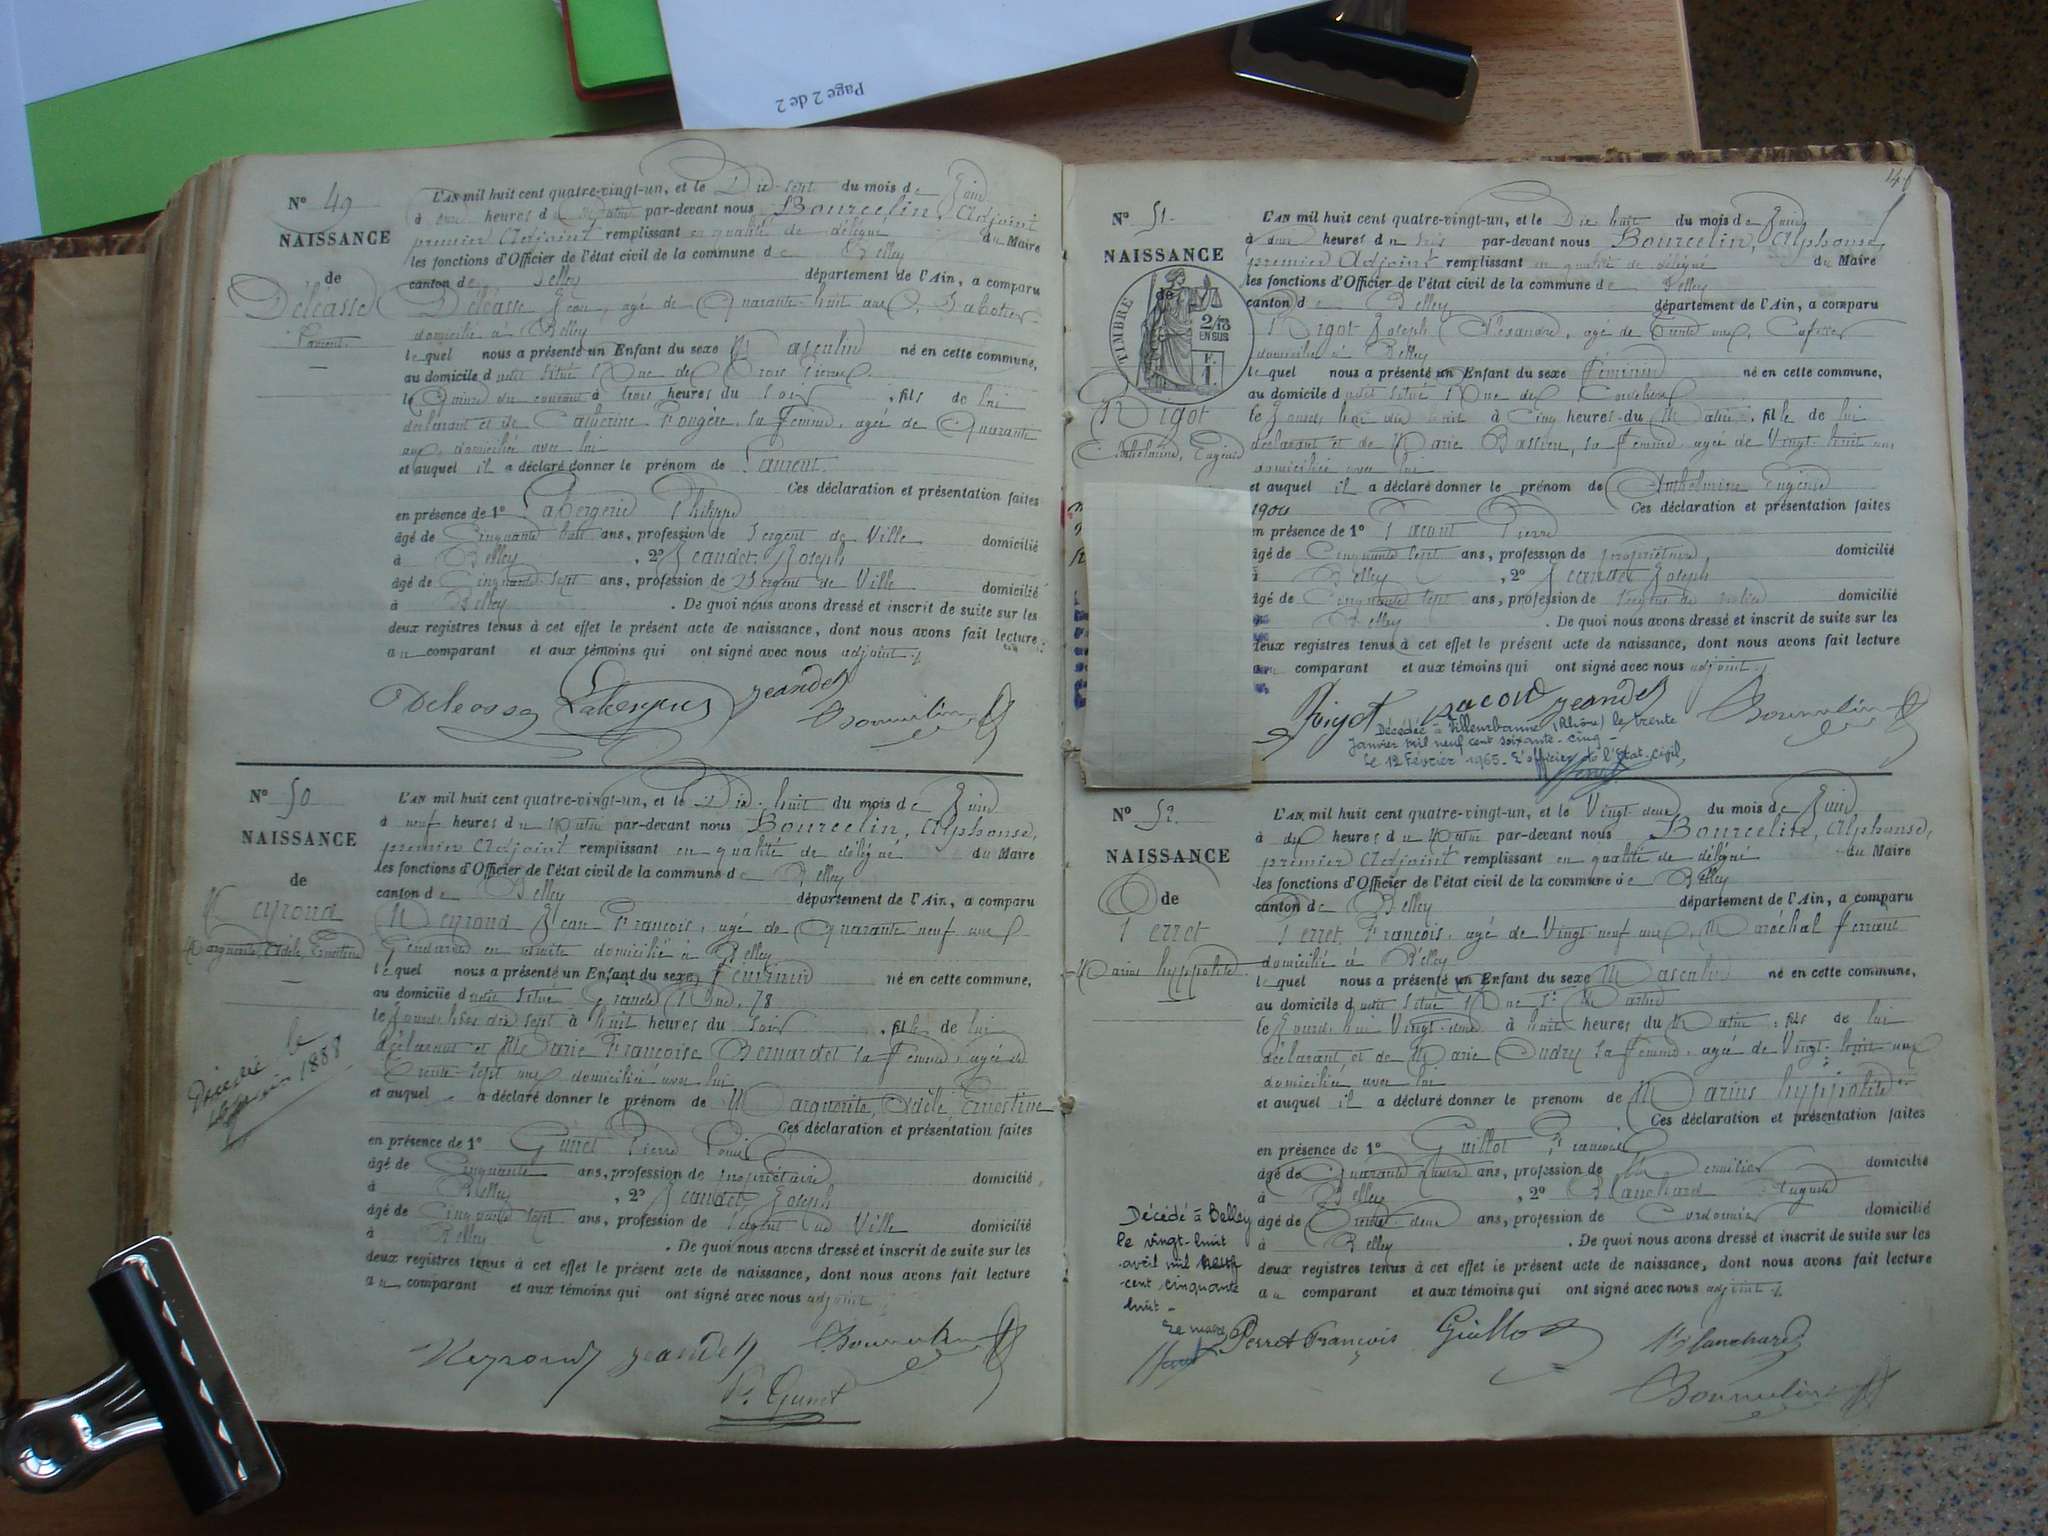 Page 2 de 2
N° 49
NAISSANCE
de
Déléasse
Laurent
L'AN mil huit cent quatre-vingt-un, et le Dix-sept du mois de Juin
à heures du par-devant nous Bourcelin, Adjoint
premier Adjoint remplissant en qualité de délégué du Maire
les fonctions d'Officier de l'état civil de la commune de Belley
canton de Belley département de l'Ain, a comparu
Déléasse Jean, agé de Quarante-huit ans, Sabotier
domicilié à Belley
lequel nous a présenté un Enfant du sexe Masculin né en cette commune,
au domicile dudit situé Rue des Trois
le Quinze du courant à trois heures du Soir, fils de lui
déclarant et de Catherine Fougère, sa Femme, agée de Quarante
ans, domiciliée avec lui
et auquel il a déclaré donner le prénom de Laurent.
Ces déclaration et présentation faites
en présence de 1° Labergerie Philippe
âgé de Cinquante huit ans, profession de Sergent de Ville domicilié
à Belley, 2° Jeandet Joseph
âgé de Cinquante-sept ans, profession de Sergent de Ville domicilié
à Belley. De quoi nous avons dressé et inscrit de suite sur les
deux registres tenus à cet effet le présent acte de naissance, dont nous avons fait lecture
au comparant et aux témoins qui ont signé avec nous adjoint.
Jeandet
N° 50
NAISSANCE
de
Meyroud
Marguerite, Adèle, Ernestine
1888
L'AN mil huit cent quatre-vingt-un, et le Dix-huit du mois de Juin
à neuf heures du Matin par-devant nous Bourcelin, Alphonse,
premier Adjoint remplissant en qualité de délégué du Maire
les fonctions d'Officier de l'état civil de la commune de Belley
canton de Belley département de l'Ain, a comparu
Meyroud Jean François, agé de Quarante neuf ans
Gendarme en retraite domicilié à Belley
lequel nous a présenté un Enfant du sexe Féminin né en cette commune,
au domicile dudit situé Grande Rue, 78
le dix sept à huit heures du Soir, fille de lui
déclarant et de Marie Françoise Bernardet sa Femme, agée de
Trente-sept ans domiciliée avec lui
et auquel a déclaré donner le prénom de Marguerite, Adèle Ernestine
Ces déclaration et présentation faites
en présence de 1° Gunet Pierre Louis
âgé de Cinquante ans, profession de propriétaire domicilié
à Belley, 2° Jeandet Joseph
âgé de Cinquante sept ans, profession de Sergent de Ville domicilié
à Belley. De quoi nous avons dressé et inscrit de suite sur les
deux registres tenus à cet effet le présent acte de naissance, dont nous avons fait lecture
au comparant et aux témoins qui ont signé avec nous adjoint
Meyroud Jeandet
P. Gunet
N° 51
NAISSANCE
de
TIMBRE
2/10
EN SUS
Rigot
Anthelmine, Eugénie
L'AN mil huit cent quatre-vingt-un, et le Dix-huit du mois de Juin
à heures du Soir par-devant nous Bourcelin, Alphonse,
premier Adjoint remplissant en qualité de délégué du Maire
les fonctions d'Officier de l'état civil de la commune de Belley
canton de Belley département de l'Ain, a comparu
Rigot Joseph Alexandre, agé de Trente ans, Cafetier
domicilié à Belley
lequel nous a présenté un Enfant du sexe Féminin né en cette commune,
au domicile dudit situé Rue des Cordeliers
le Jourd'hui dix huit à Cinq heures du Matin, fille de lui
déclarant et de Marie Bassieu, sa Femme, agée de Vingt-huit ans
domiciliée avec lui
et auquel il a déclaré donner le prénom de Anthelmine Eugénie
1904 Ces déclaration et présentation faites
en présence de 1° Pacoud Pierre
âgé de Cinquante sept ans, profession de propriétaire, domicilié
Belley, 2° Jeandet Joseph
âgé de Cinquante sept ans, profession de domicilié
Belley. De quoi nous avons dressé et inscrit de suite sur les
deux registres tenus à cet effet le présent acte de naissance, dont nous avons fait lecture
au comparant et aux témoins qui ont signé avec nous adjoint.
Rigot Pacoud Jeandet
Décédée à Villeurbanne (Rhône) le trente
Janvier mil neuf cent soixante-cinq -
Le 12 Février 1965 - L'officier de l'Etat-Civil,
N° 52
NAISSANCE
de
Perret
Marius hyppolite
Décédé à Belley
le vingt-huit
avril mil neuf
cent cinquante
huit -
Le maire
L'AN mil huit cent quatre-vingt-un, et le Vingt-deux du mois de Juin
à dix heures du Matin par-devant nous Bourcelin, Alphonse,
premier Adjoint remplissant en qualité de délégué du Maire
les fonctions d'Officier de l'état civil de la commune de Belley
canton de Belley département de l'Ain, a comparu
Perret, François, agé de Vingt-neuf ans, Maréchal ferrant
domicilié à Belley
lequel nous a présenté un Enfant du sexe Masculin né en cette commune,
au domicile dudit situé Rue St Martin
le Jourd'hui Vingt-deux à huit heures du Matin, fils de lui
déclarant et de Marie Cudry sa Femme, agée de Vingt-huit ans
domiciliée avec lui
et auquel il a déclaré donner le prenom de Marius hyppolite
Ces déclaration et présentation faites
en présence de 1° Guillot François
âgé de Quarante Quatre ans, profession de Menuisier domicilié
à Belley, 2° Blanchard Auguste
âgé de Trente deux ans, profession de Cordonnier domicilié
à Belley. De quoi nous avons dressé et inscrit de suite sur les
deux registres tenus à cet effet le présent acte de naissance, dont nous avons fait lecture
au comparant et aux témoins qui ont signé avec nous adjoint.
Perret François Guillot Blanchard